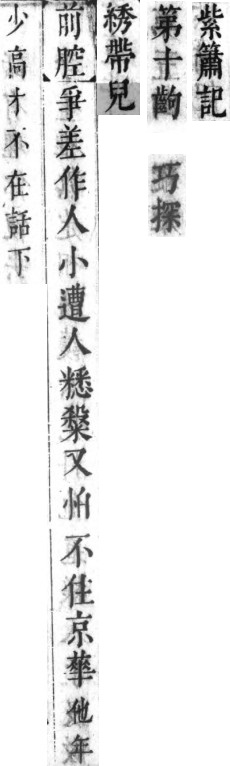 紫簫記
第十齣　巧探
綉帶兒
前腔】爭差作人小遭人𥻘㮟又怕不住京華他年
少高才不在話下